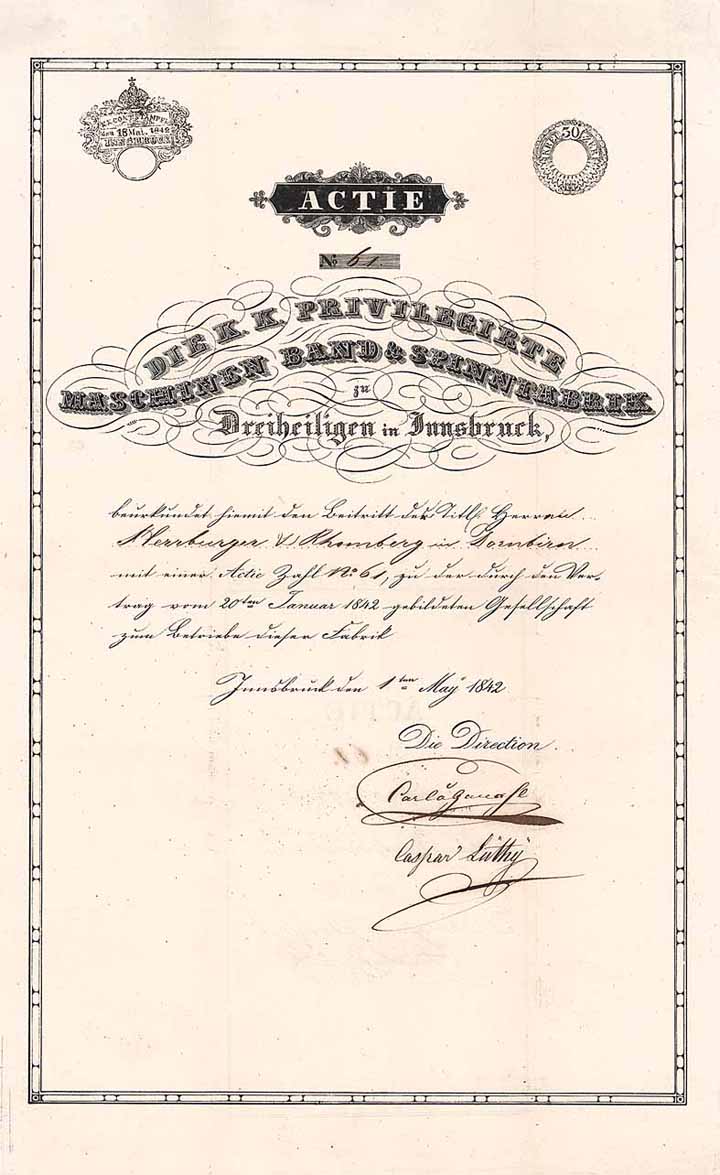 K.K. CONT. STÄMPEL
den 18 Mai. 1842
INNSBRUCK
30
ACTIE
No 61.
DIE K. K. PRIVILEGIRTE
MASCHINEN BAND & SPINNFABRIK
zu
Dreiheiligen in Innsbruck,
beurkundet hiemit den Beitritt der Titl. Herren
Herrburger & Rhomberg in Dornbirn
mit einer Actie Zahl No 61, zu der durch den Ver-
trag vom 20ten Januar 1842 gebildeten Gesellschaft
zum Betriebe dieser Fabrik
Innsbruck den 1ten May 1842
Die Direction.
Carl Ganahl
Caspar Lüthÿ